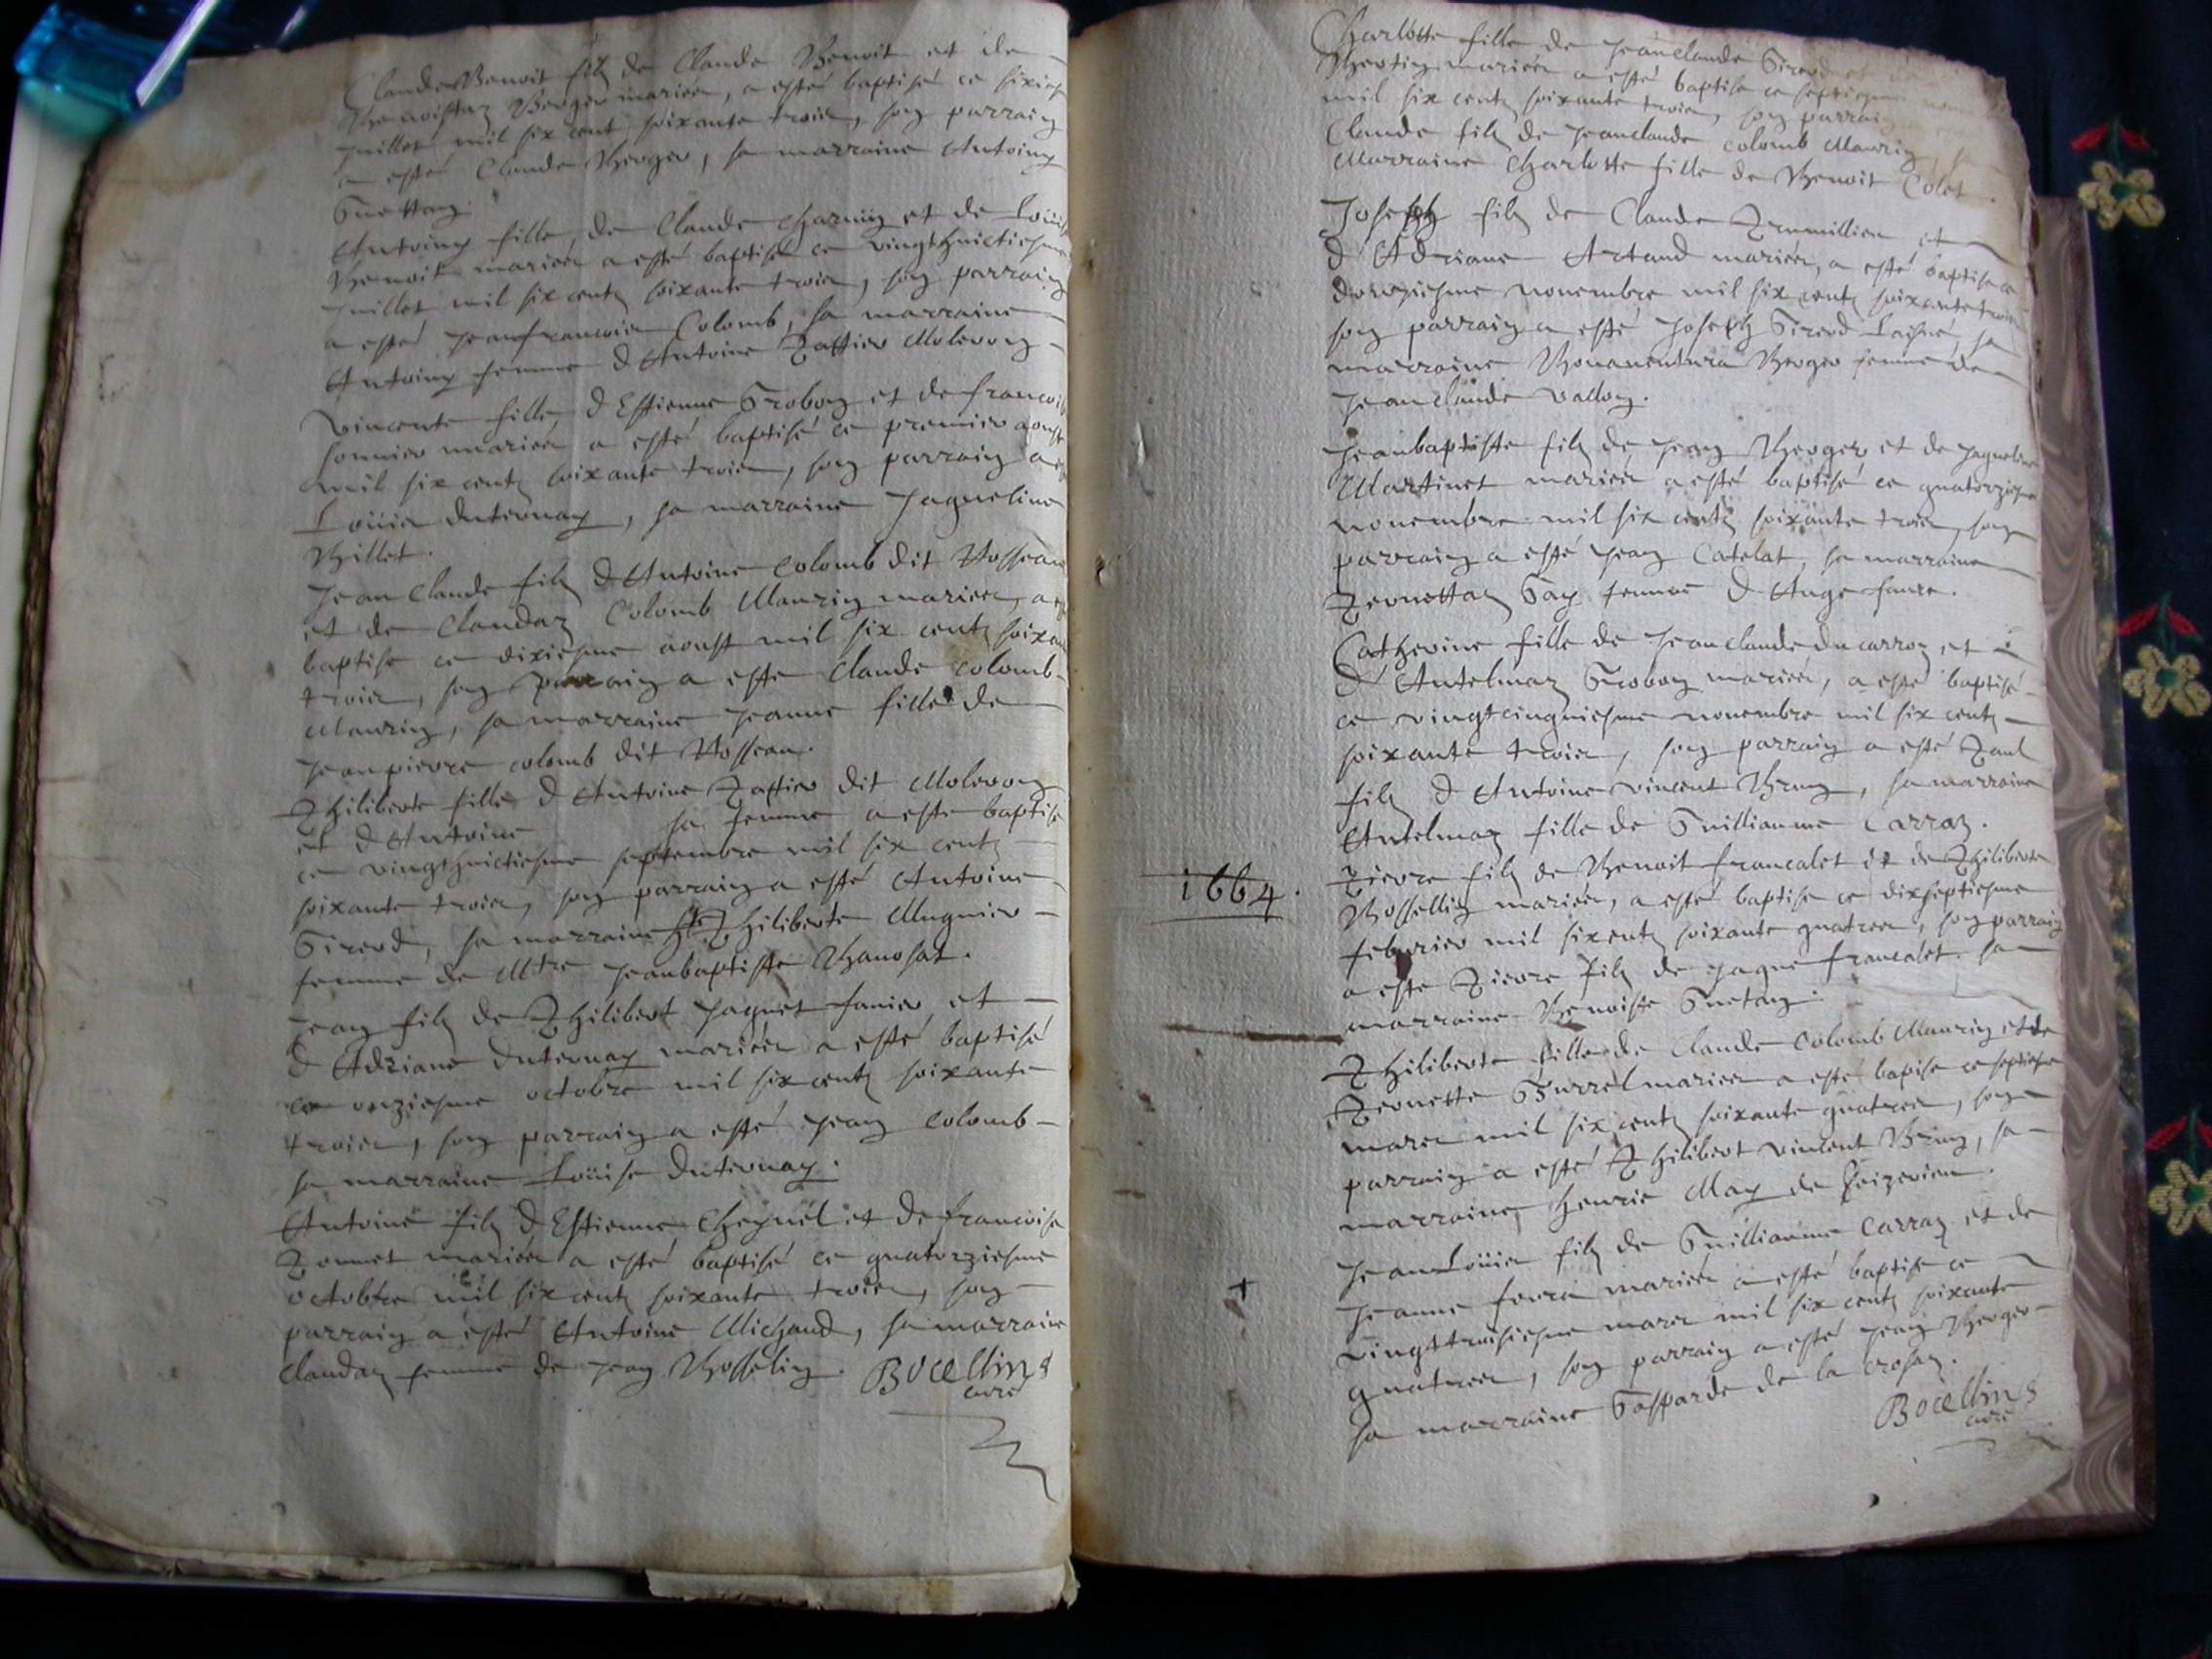 Claude Benoit filz de Claude Benoit et de
Benoistaz Berger mariees, a esté baptisé ce sixiesme
juillet mil six cent soixante trois, son parrain
a esté Claude Berger, sa marraine Antoiny
Guettang
Antoiny fille de Claude Charnin et de Louise
Benoit mariees a esté baptisé ce vingthuictiesme
juillet mil six centz soixante trois, son parrain
a esté jeanfrancois Colomb, sa marraine
Antoiny femme d Antoine Pattier Moleron
Vincente fille d Estienne Grobon et de francoise
sonnier mariees a esté baptisé ce premier aoust
mil six centz soixante trois, son parrain a esté
Louis duternay, sa marraine Jaqueline
Billet.
Jean Claude filz d Antoine Colomb dit Bosseau
et de Claudaz Colomb Maurin mariees, a esté
baptise ce dixiesme aoust mil six centz soixante
trois, son parrain a esté Claude Colomb
Maurin, sa marraine jeanne fille de
jeanpierre colomb dit Bosseau.
Philiberte fille d Antoine Pattier dit Moleron
et d Antoine sa femme a esté baptisé
ce vingthuictiesme septembre mil six centz
soixante trois, son parrain a esté Antoine
Girerd, sa marraine Philiberte Mugnier
femme de Mtre jeanbaptiste Banosat.
jean filz de Philibert jaquet fanier et
d Adriane duternay mariees a esté baptisé
ce onziesme octobre mil six centz soixante
trois, son parrain a esté jean Colomb
sa marraine Louise duternay.
Antoine filz d Estienne Cheynel et de francoise
Ponnet mariees a esté baptisé ce quatorziesme
octobre mil six centz soixante trois, son
parrain a esté Antoine Michaud, sa marraine
Claudaz femme de jean Bosselin. Bocellins
curé
Charlotte fille de jeanclaude Girerd et de
Bertin mariees a esté baptise ce septiesme
mil six centz soixante trois, son parrain
Claude filz de jeanclaude colomb Maurin,
Marraine Charlotte fille de Benoit Colet.
Joseph filz de Claude Prumillieu et
d Adriane Artaud mariees, a esté baptisé ce
douziesme novembre mil six centz soixante trois
son parrain a esté Joseph Girerd Laisné, sa
marraine Bonaventura Berger femme de
jean claude vallon.
jeanbaptiste filz de jean Berger et de jaqueline
Martinet mariees a esté baptisé ce quatorziesme
novembre mil six centz soixante trois, son
parrain a esté jean Catelat, sa marraine
Pernettaz Gay femme d Ange faure.
Catherine fille de jean claude ducarroz et
d Antelmaz Grobon mariees, a esté baptisé
ce vingtcinquiesme novembre mil six centz
soixante trois, son parrain a esté Paul
filz d Antoine vincent Brun, sa marraine
Antelmaz fille de Guilliaume Carraz.
1664.
Pierre filz de Benoit francalet et de Philiberte
Bossellin mariees, a esté baptisé ce dixseptiesme
febvrier mil sixcentz soixante quatre, son parrain
a esté Pierre filz de jaque francalet sa
marraine Benoiste Guetang.
Philiberte fille de Claude Colomb Maurin et de
Pernette Burrel mariees a esté bapise ce septiesme
mars mil six centz soixante quatre, son
parrain a esté Philibert vincent Brun, sa
marraine henrie May de Peizerieu.
jeanLouis filz de Guilliaume Carraz et de
jeanne ferra mariees a esté baptisé ce
vingttroisiesme mars mil six centz soixante
quatre, son parrain a esté jean Berger
sa marraine Gasparde de la crosaz.
Bocellins
curé